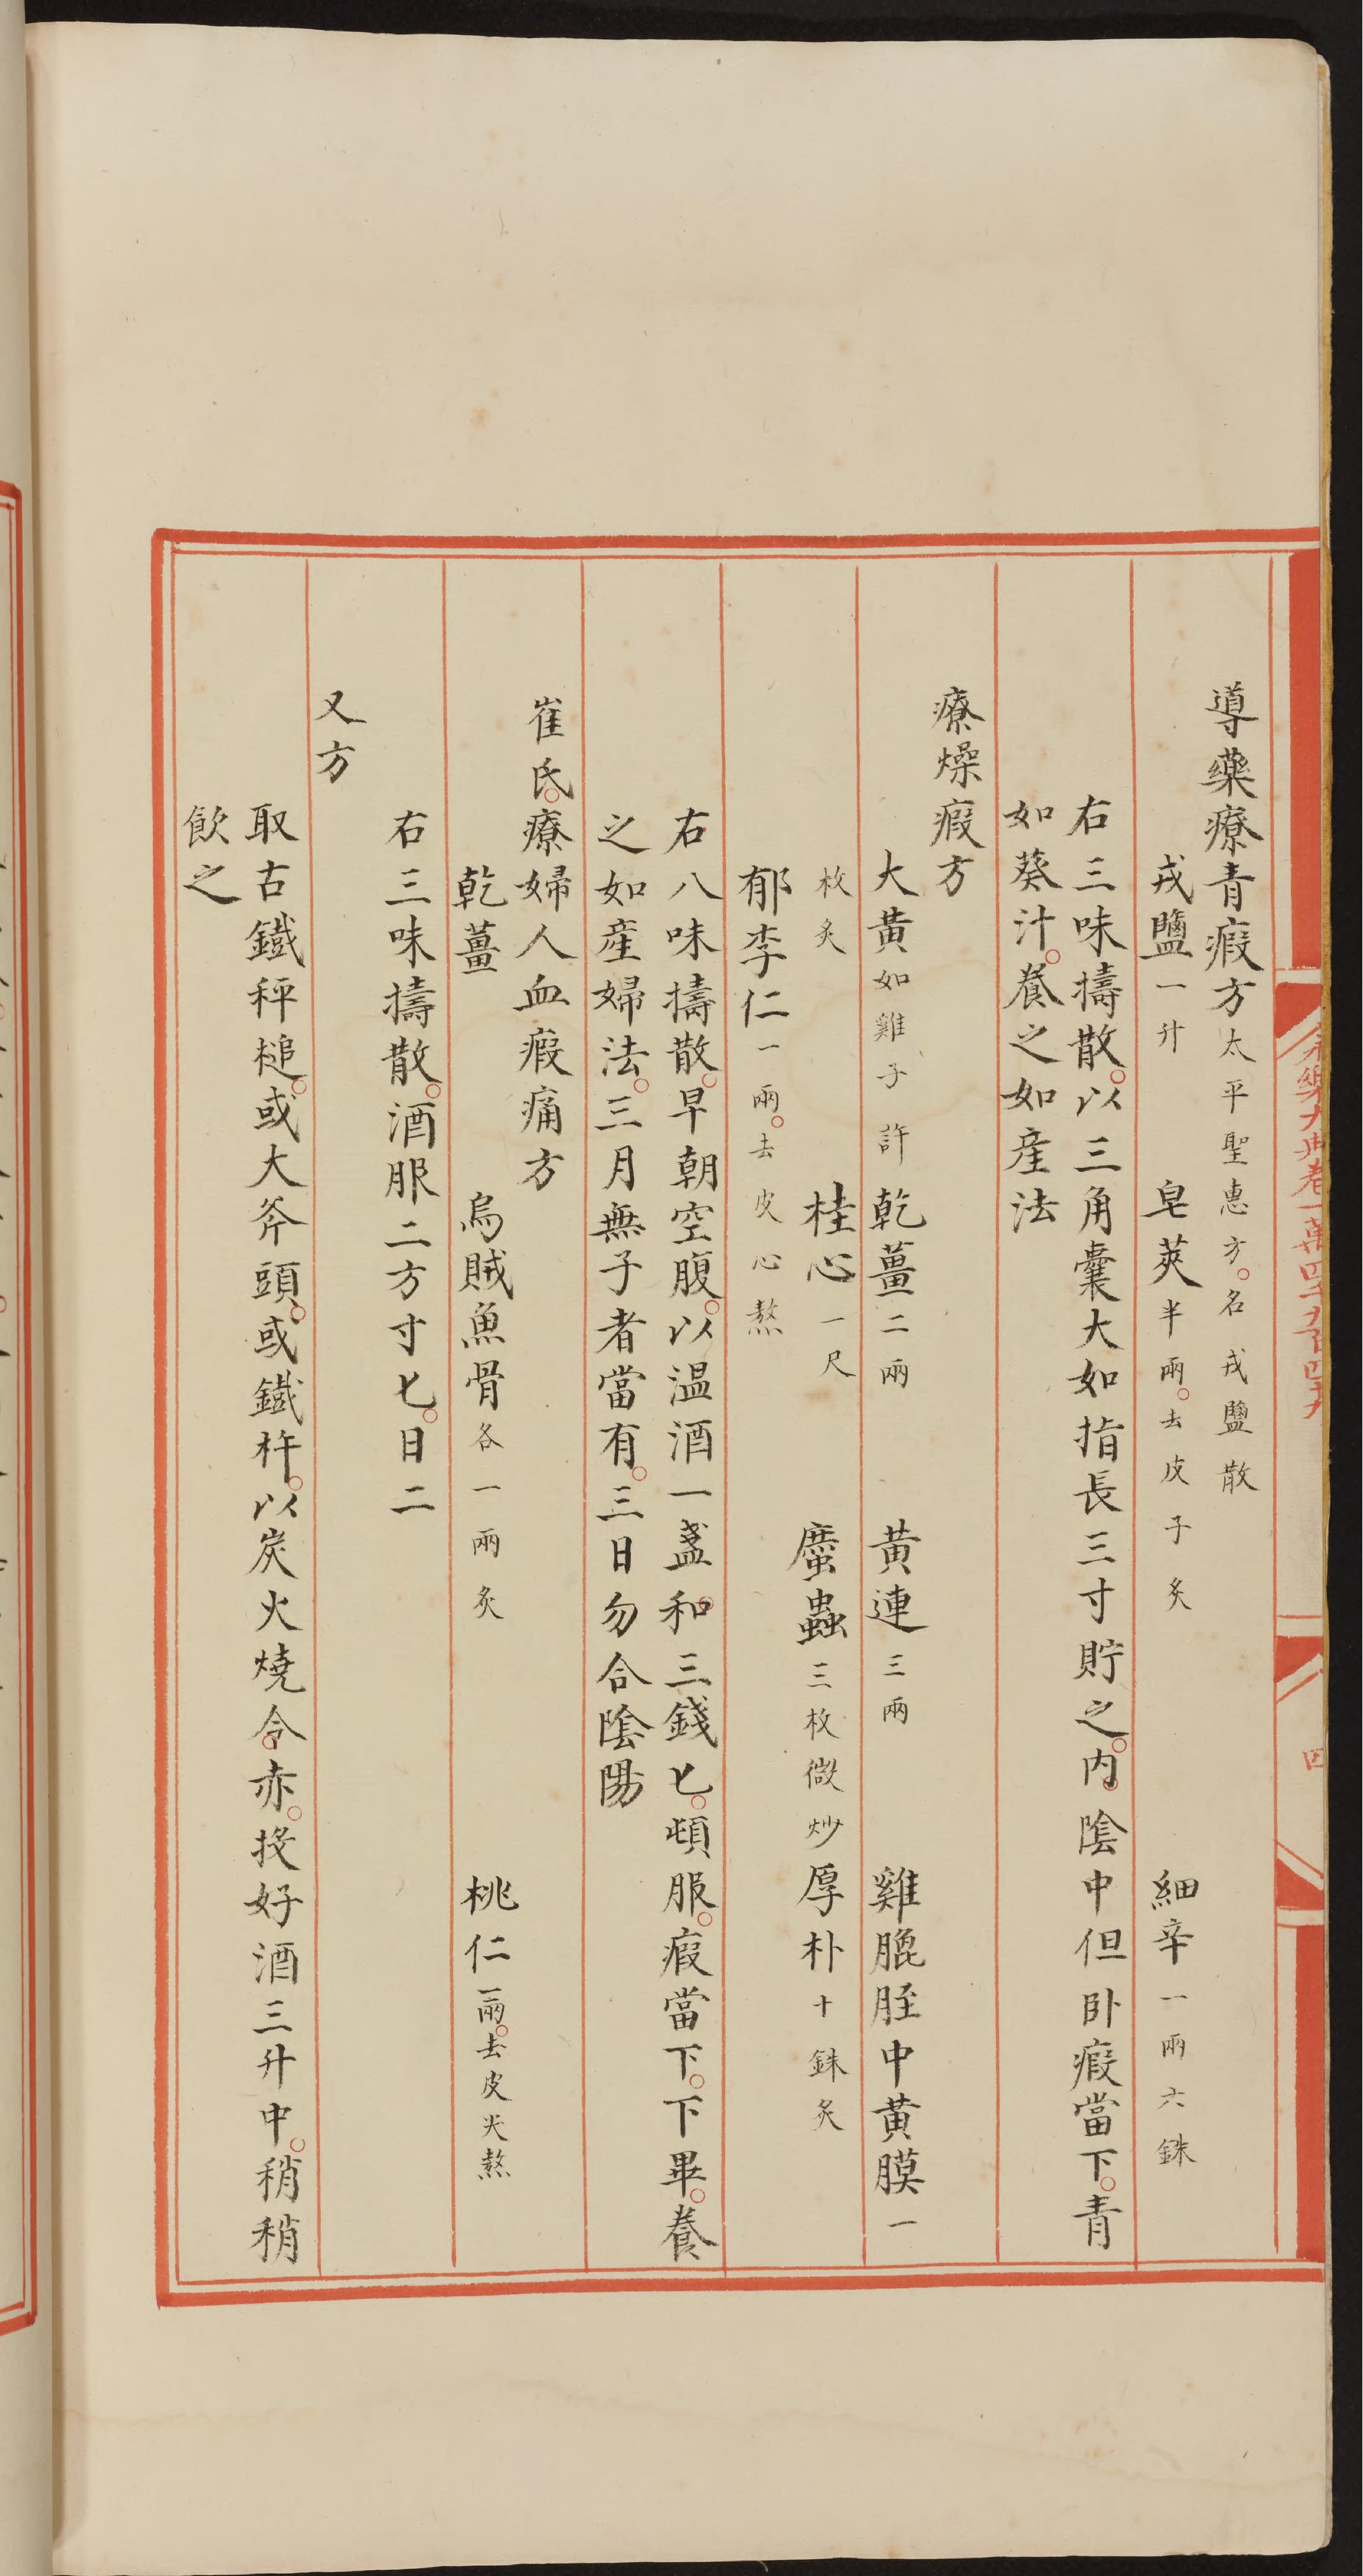 永樂大典卷一萬四千九百四十九
四
導藥療青瘕方太平聖惠方。名戎鹽散
戎鹽一升 皂莢半兩。去皮子炙 細辛一兩六銖
右三味擣散。以三角囊大如指長三寸貯之。内。陰中但卧瘕當下。青
如葵汁。養之如産法
療燥瘕方
大黄如雞子許 乾薑二兩 黄連三兩 雞膍胵中黄膜一
枚炙 桂心一尺 䗪蟲三枚微炒 厚朴十銖炙
郁李仁一兩。去皮心熬
右八味擣散。早朝空腹。以温酒一盞。和三錢匕。頓服。瘕當下。下畢。養
之如産婦法。三月無子者當有。三日勿合陰陽
崔氏。療婦人血瘕痛方
乾薑 烏賊魚骨各一兩炙 桃仁一兩。去皮尖熬
右三味擣散。酒服二方寸匕。日二
又方
取古鐵秤槌。或大斧頭。或鐵杵。以炭火燒令。赤。投好酒三升中。稍稍
飲之